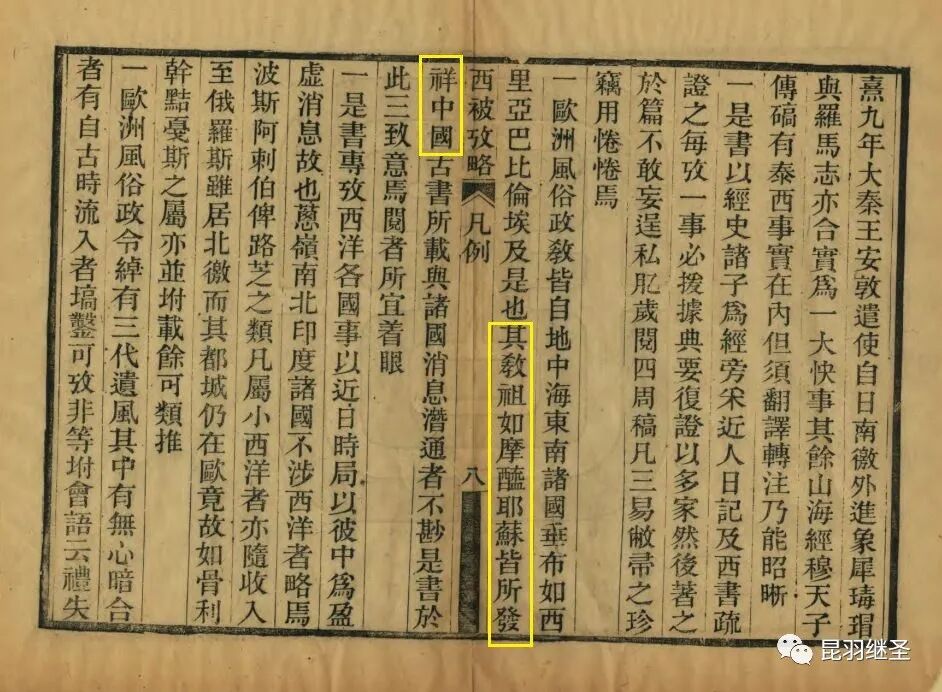 熹九年大秦王安敦遣使自日南徼外進象犀瑇瑁
與羅馬志亦合實爲一大快事其餘山海經穆天子
傳碻有泰西事實在內但須翻譯轉注乃能昭晰
一是書以經史諸子爲經旁宋近人日記及西書疏
證之每攷一事必援據典要復證以多家然後著之
於篇不敢妄逞私肊歲閱四周稿凡三易敝帚之珍
竊用惓惓焉
一歐洲風俗政敎皆自地中海東南諸國乖布如西
里亞巴比倫埃及是也其敎祖如摩醯耶蘇皆所發
西被攷略
凡例
八
祥中國古書所載與諸國消息潛通者不尠是書於
此三致意焉閱者所宜着眼
一是書專攷西洋各國事以近日時局以彼中爲盈
虛消息故也蔥嶺南北印度諸國不涉西洋者略焉
波斯阿剌伯俾路芝之類凡屬小西洋者亦隨收入
至俄羅斯雖居北徼而其都城仍在歐竟故如骨利
幹黠戞斯之屬亦並坿載餘可類推
一歐洲風俗政令綽有三代遺風其中有無心暗合
者有自古時流入者塙鑿可攷非等坿會語云禮失
昆羽继圣